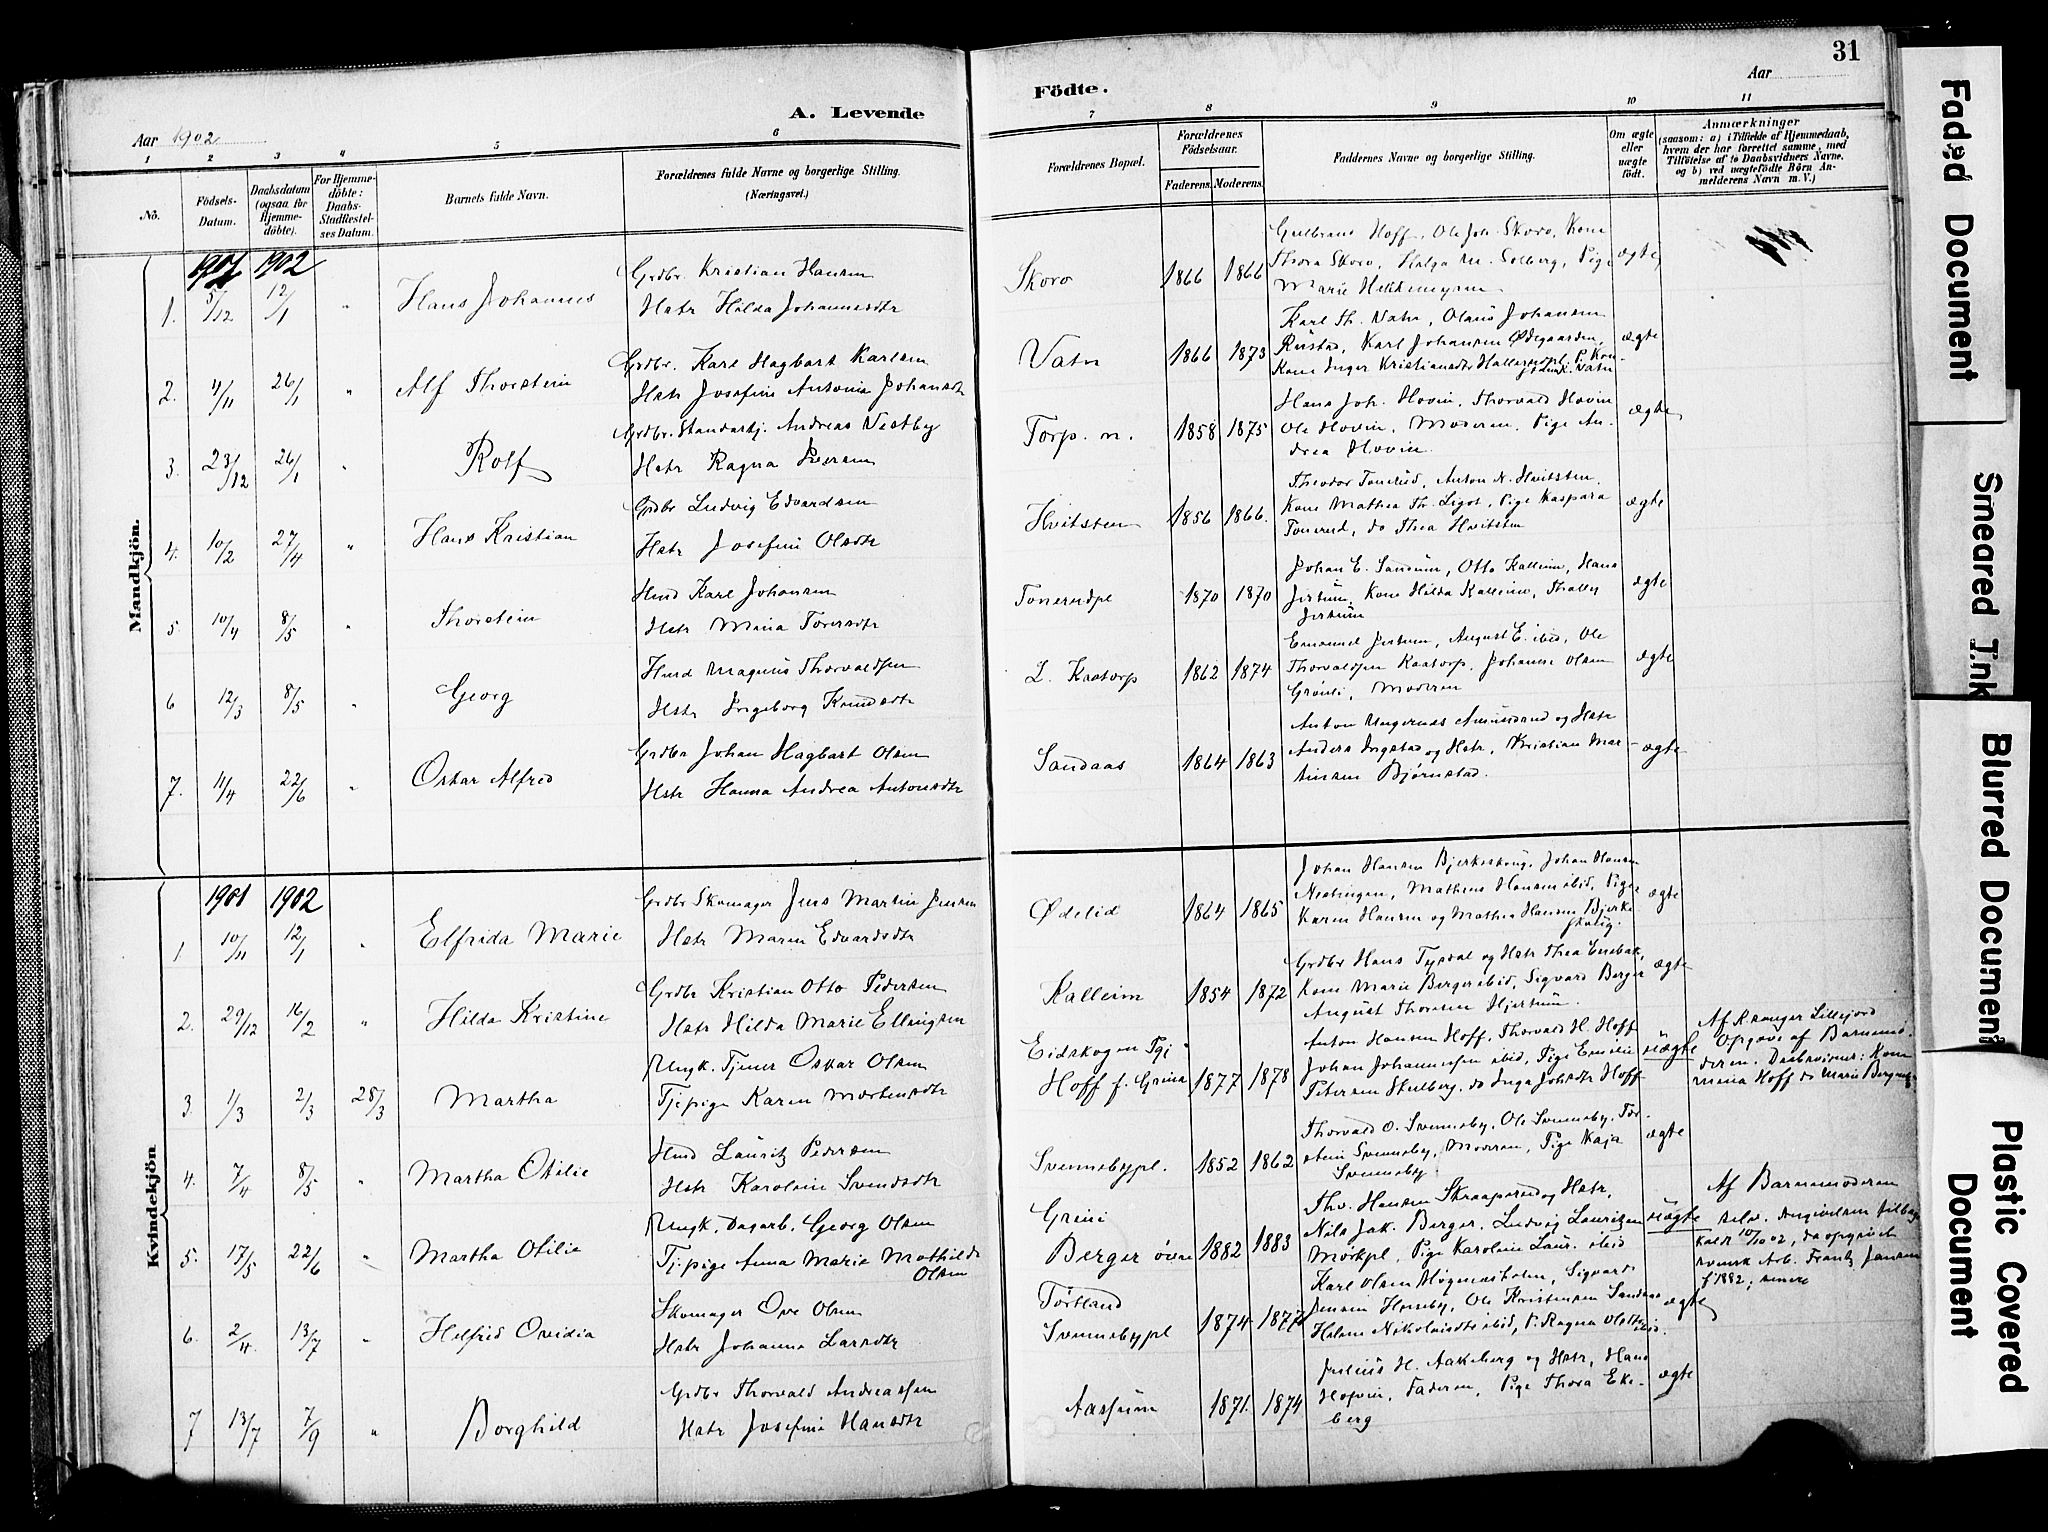 31
Aar 1902
A. Levende
Födte.
Aar
1 2 3 4 5 6 7 8 9 10 11
No.
Födsels-
Datum.
Daabsdatum
(ogsaa for
Hjemme-
döbte).
For Hjemme-
döbte:
Daabs-
Stadfæstel-
ses Datum.
Barnets fulde Navn.
Forældrenes fulde Navne og borgerlige Stilling.
(Næringsvei.)
Forældrenes Bopæl.
Forældrenes
Födselsaar.
Faderens. Moderens.
Faddernes Navne og borgerlige Stilling.
Om ægte
eller
uægte
födt.
Anmærkninger
(saasom: a) i Tilfælde af Hjemmedaab,
hvem der har forrettet samme, med
Tilföielse af to Daabsvidners Navne.
og b) ved uægtefödte Börn An-
melderens Navn m. V.)
Mandkjön.
1901 1902
Grdbr. Kristian Hansen
Gulbrand Hoff, Ole Joh. Skoro, Kone
1. 5/12 12/1 " Hans Johannes
Hstr Hilda Johannesdtr
Skoro 1866 1866
Thora Skoro, Helga M. Solberg, Pige
ægte
Marie
2. 4/11 26/1 " Alf Thorstein
Grdbr. Karl Hagbart Karlsen
Hstr Josefine Antonie Johansdtr
Vatn 1866 1873
Karl Th. Vatn, Olaus Johansen
Rustad, Karl Johansen Ødegaarden,
Kone Inger Kristiansdtr
ægte
3. 23/12 26/1 " Rolf
Grdbr. Standerhj. Andreas Vestby
Hstr Ragna
Torp. n. 1858 1875
Hans Joh. Hovin, Thorvald Hovin
Ole Hovin, Moderen, Pige An-
drea Hovin.
ægte
4. 10/2 27/4 " Hans Kristian
Grdbr Ludvig Edvardsen
Hstr Josefine Olsdtr
Hvitsten 1856 1866.
Theodor Tonerud, Anton N. Hvitsten.
Kone Mathea Th. Pige Kaspara
Tonerud, do Thea Hvitsten
ægte
5 10/4 8/5 " Thorstein
Hmd Karl Johansen
Hstr Maria Toresdtr
Tonerudpl 1870 1870
Johan E. Sandum, Otto Kalleim, Hans
Kone Hilda Kalleim,
ægte
6 12/3 8/5 " Georg
Hmd Magnus Thorvaldsen
Hstr Ingeborg Knudsdtr
L. Kaatorp 1862 1874
Emanuel August E. ibid, Ole
Thorvaldsen Kaatorp, Johanne Olsen
Grønli, Moderen
ægte
7. 11/4 22/6 " Oskar Alfred
Grdbr Johan Hagbart Olsen
Hstr Hanna Andrea Antonsdtr
Sandaas 1864 1863
Anton og Hstr
Anders Ingstad og Hstr, Kristian Mar-
tinsen Bjørnstad.
ægte
Kvindekjön.
1901 1902
1 10/11 12/1 " Elfrida Marie
Grdbr Skomager Jens Martin Jensen
Hstr Maren Edvardsdtr
Ødelid 1864 1865
Johan Hansen Bjerkeskoug, Johan Hansen
Matheus Hansen ibid, Pige
Karen Hansen og Mathea Hansen Bjerke-
skoug.
ægte
2. 29/12 16/2 " Hilda Kristine
Grdbr Kristian Otto Pedersen
Hstr Hilda Marie Ellingsen
Kalleim 1854 1872
Grdbr Hans og Hstr Thea
Kone Marie Berger ibid, Sigvard Berger
August Thoresen
ægte
3. 1/3 2/3 28/3 Martha
Ungk. Tjener Oskar Olsen
Tjpige Karen Mortensdtr
Eidskogen Tgj
Hoff f. Greina 1877 1878
Anton Hansen Hoff, Thorvald H. Hoff
Johan Johannessen ibid, Pige Emilie
Petersen do Inga Johsdtr Hoff
uægte
Opgave af Barnemo-
deren. Daabsvidner: Kone
Hoff do Marie
4. 7/4 8/5 " Martha Otilie
Hmd Lauritz Pedersen
Hstr Karoline Svendsdtr
Svennebypl. 1852 1862
Thorvald O. Svenneby, Ole Svenneby, Tor-
stein Svenneby, Moderen, Pige Kaja
Svenneby.
ægte
5. 17/5 22/6 " Martha Otilie
Ungk. Dagarb. Georg Olsen
Tjpige Anna Marie Mathilde
Olsen
Greni
Berger øvre 1882 1883
Thv. Hansen Skraaperud og Hstr,
Nils Jak. Berger, Ludvig Lauritzen
Mørkpl, Pige Karoline Laur. ibid
uægte
Af Barnemoderen
selv. Angivelsen tilbage-
kaldt 10/10 02, da opgivet
svensk Arb. Frantz Jansen
f 1882, senere
6. 2/4 13/7 " Helfrid Ovidia
Skomager Ove Olsen
Hstr Johanne Larsdtr
Tørtland
Svennebypl 1874 1877
Karl Olsen Sigvard
Ole Kristensen Sandaas
Helene Nikolaisdtr ibid, P. Ragna
ægte
7 13/7 7/9 " Borghild
Grdbr Thorvald Andreassen
Hstr Josefine Hansdtr
1871. 1874
Julius H. Aakeberg og Hstr, Hans
Faderen, Pige Thora Eke-
berg
ægte
Faded Document
Smeared Ink
Blurred Document
Plastic Covered
Document